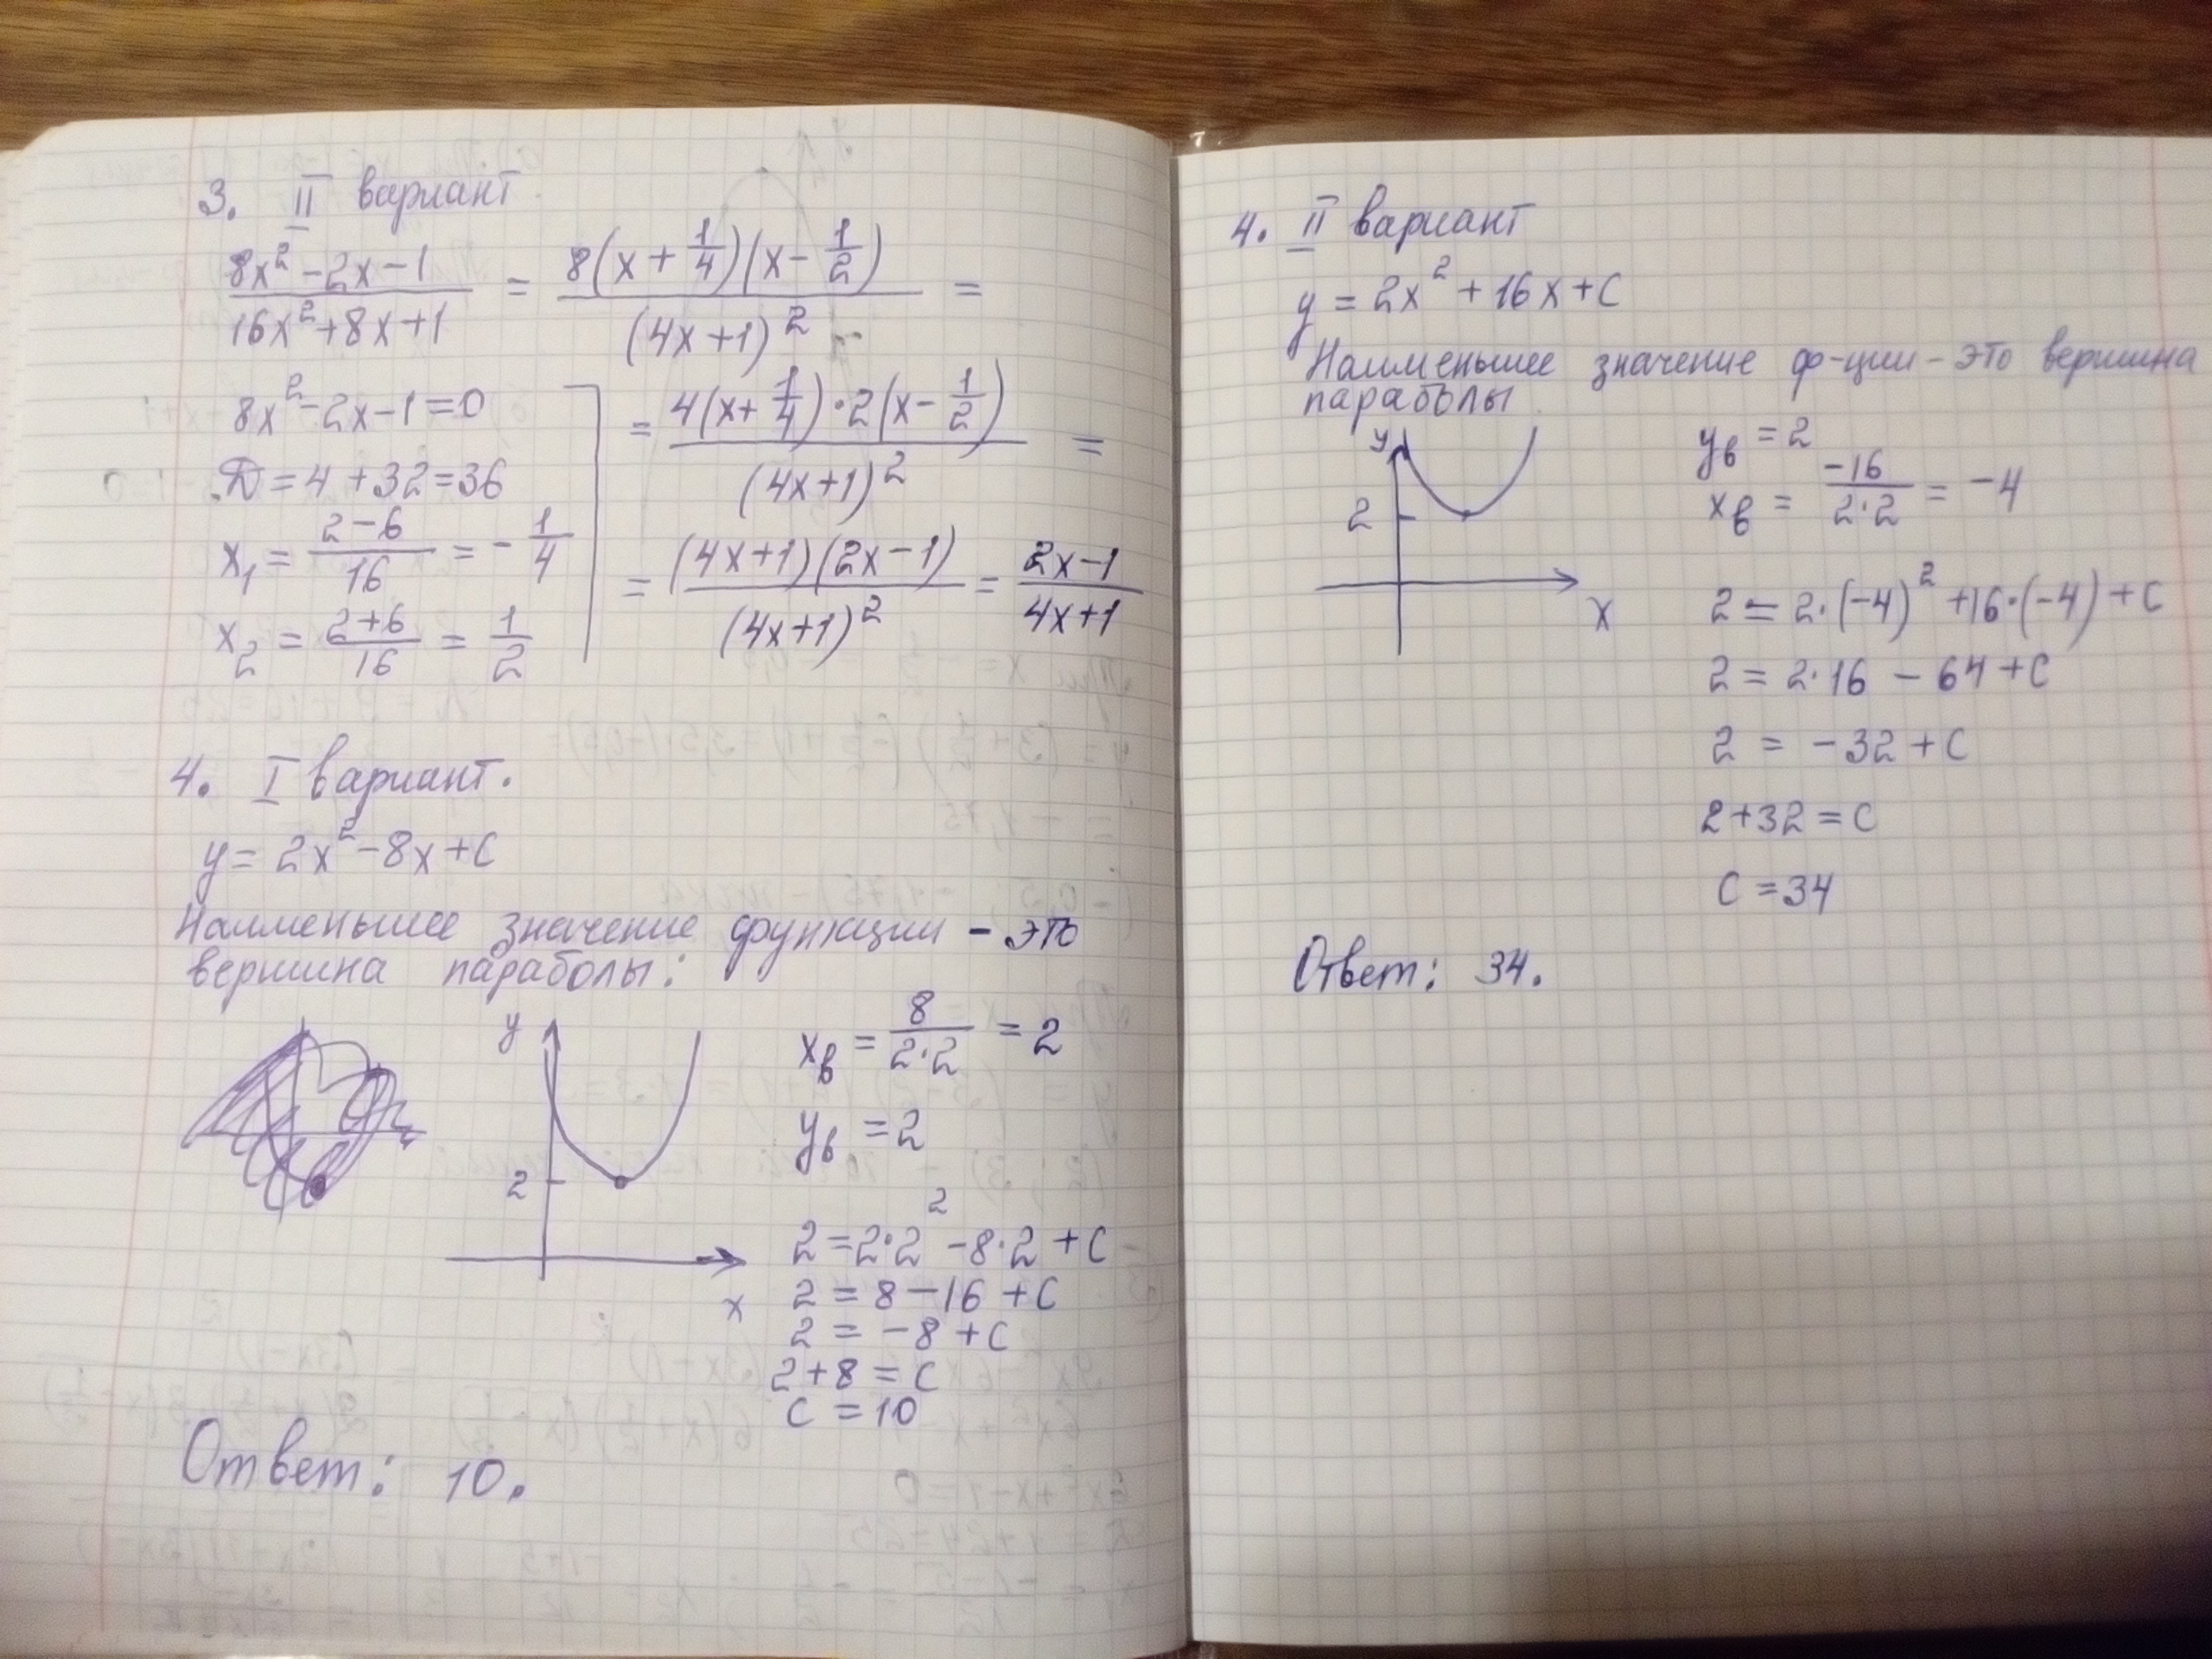 3. II вариант
(8x² - 2x - 1)/(16x² + 8x + 1) = 8(x + 1/4)(x - 1/2)/(4x + 1)² =
8x² - 2x - 1 = 0
D = 4 + 32 = 36
x₁ = (2 - 6)/16 = - 1/4
x₂ = (2 + 6)/16 = 1/2
= 4(x + 1/4) · 2(x - 1/2)/(4x + 1)² =
= (4x + 1)(2x - 1)/(4x + 1)² = (2x - 1)/(4x + 1)
4. I вариант.
y = 2x² - 8x + c
Наименьшее значение функции - это
вершина параболы:
y
2
x
xв = 8/(2·2) = 2
yв = 2
2 = 2·2² - 8·2 + c
2 = 8 - 16 + c
2 = -8 + c
2 + 8 = c
c = 10
Ответ: 10.
4. II вариант
y = 2x² + 16x + c
Наименьшее значение ф-ции - это вершина
параболы.
y
2
x
yв = 2
xв = -16/(2·2) = -4
2 = 2·(-4)² + 16·(-4) + c
2 = 2·16 - 64 + c
2 = -32 + c
2 + 32 = c
c = 34
Ответ: 34.